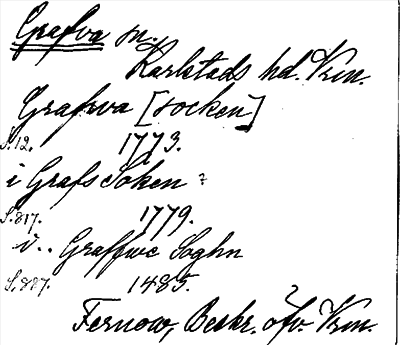 Grafva sn.
Karlstads hd. Vrm.
Grafwa [socken]
S. 12. 1773.
i Grafs Soken ?
S. 817. 1779.
i.. Graffwe Soghn
S. 887. 1485.
Fernow, Beskr. öfv. Vrm.